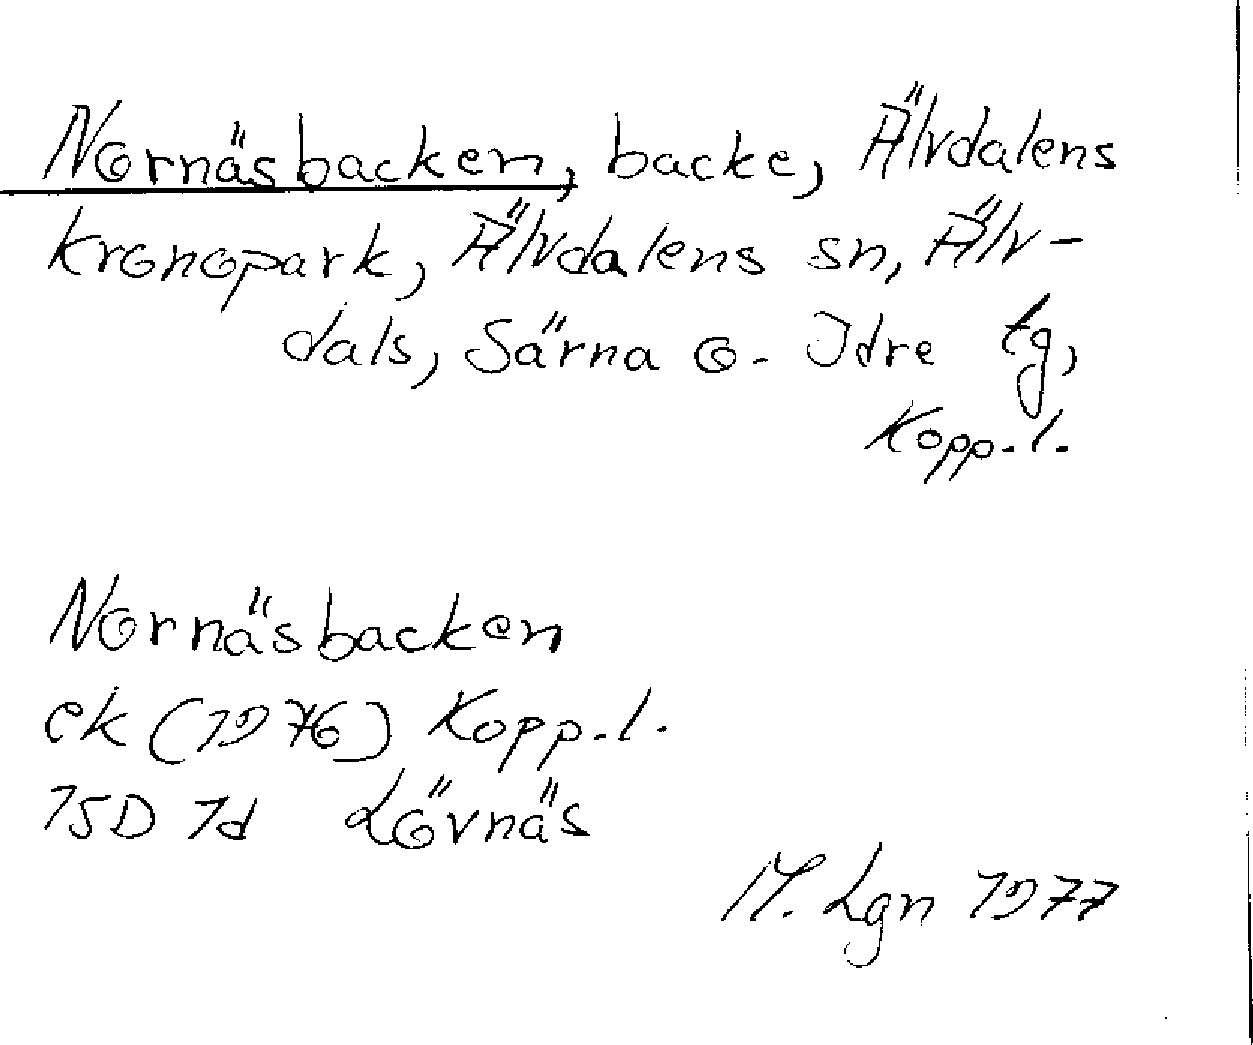 Nornäsbacken, backe, Älvdalens
kronopark, Älvdalens sn, Älv-
dals, Särna o. Idre tg,
Kopp. l.
Nornäsbacken
ek (1976) Kopp. l.
15D 1d Lövnäs
M. Lgn 1977